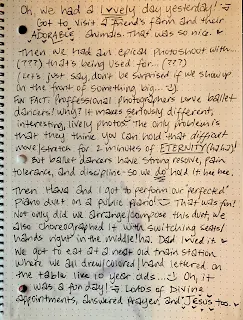 Oh, we had a lovely day yesterday!
Got to visit a friend's farm and their
ADORABLE animals. That was so nice.
Then we had an epical photoshoot with...
(???) that's being used for... (???)
Let's just say, don't be surprised if we show up
on the front of something big...
FUN FACT: Professional photographers love ballet
dancers! Why? It makes seriously different,
interesting, lively photos. The only problem is
that they think you can hold that difficult
move/stretch for 2 minutes of ETERNITY (haha)!
But ballet dancers have strong resolve, pain
tolerance, and discipline - so we do hold it hee hee.
Then and I got to perform our "perfected"
piano duet on a public piano! That was fun!
Not only did we arrange/compose this duet, we
also choreographed it with switching seats/
hands right in the middle! ha. Dad loved it
We got to eat at a neat old train station
where we all drew/colored/hand lettered on
the table like 10 year olds... Oh, it
was a fun day! Lots of Divine
appointments, answered prayer, and Jesus too.